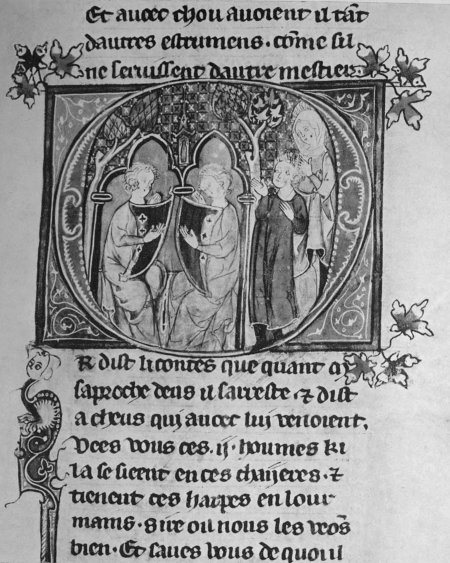 Et auoec chou auoient il tāt
dautres estrumens . cōme sil
ne seruissent dautre mestier.
OR dist li contes que quant
saproche deus il sarreste . ⁊ dist
a cheus qui auoec lui venoient.
Vees vous ces .ij. houmes ki
la se sieent en ces chaijeres . ⁊
tienent ces harpes en lour
mains . sire oil nous les veōs
bien . Et saues vous de quoi il